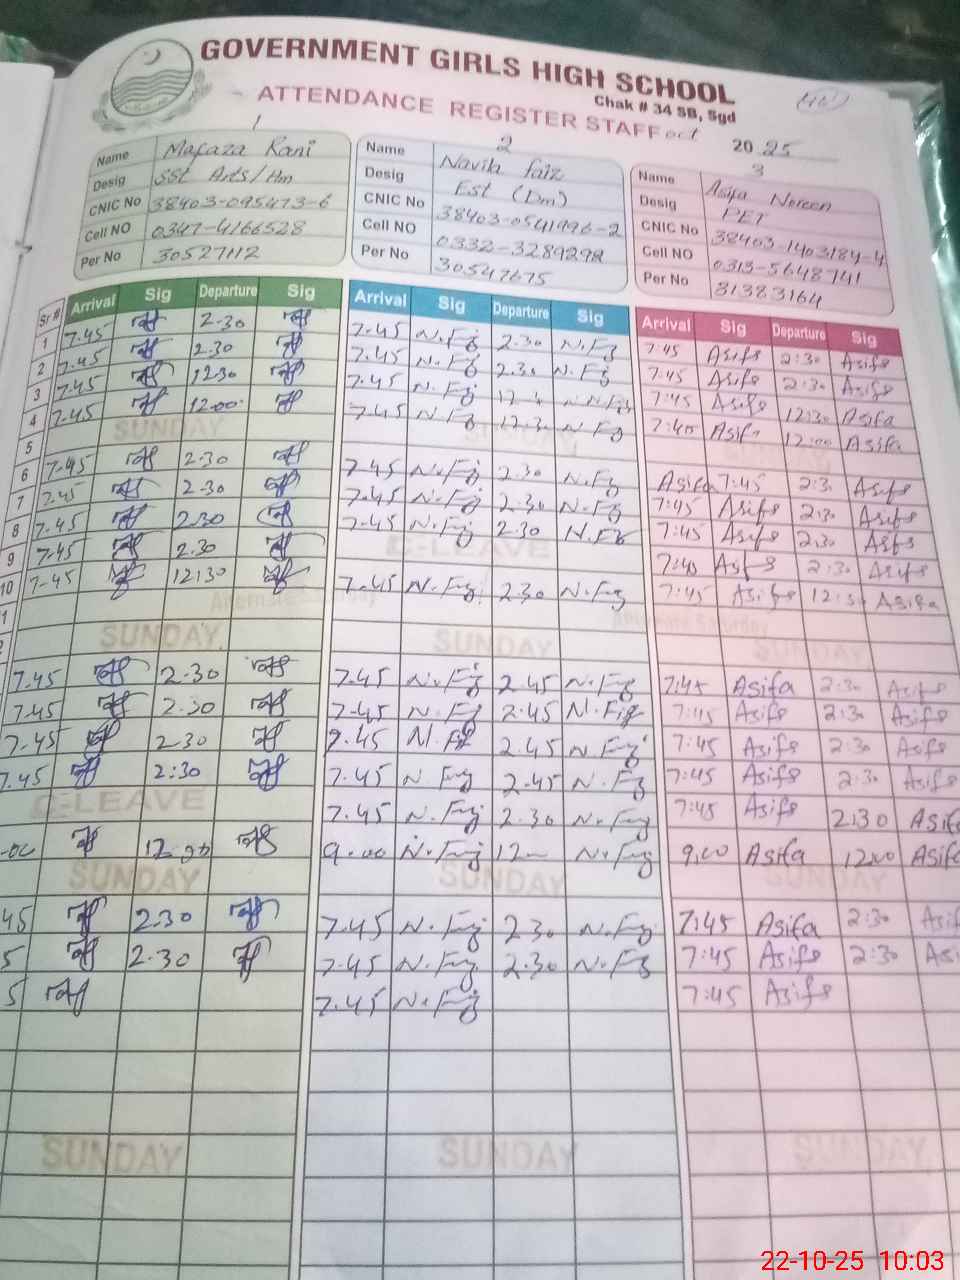 GOVERNMENT GIRLS HIGH SCHOOL
Chak # 34 SB, Sgd
ATTENDANCE REGISTER STAFF oct 2025
1
Name Mafaza Rani
Desig SST Arts/Hm
CNIC No 38403-095473-6
Cell NO 0347-4166528
Per No 30527112
2
Name Navila Faiz
Desig Est (Dm)
CNIC No 38403-0541996-2
Cell NO 0332-3289298
Per No 30547675
3
Name Asifa Noreen
Desig PET
CNIC No 38403-1403184-4
Cell NO 0313-5648741
Per No 31383164
Sr # Arrival Sig Departure Sig Arrival Sig Departure Sig Arrival Sig Departure Sig
1 7.45 2.30 7.45 N.Fz 2.30 N.Fz 7:45 Asifa 2:30 Asifa
2 7.45 2.30 7.45 N.Fz 2.30 N.Fz 7:45 Asifa 2:30 Asifa
3 7.45 12.30 7.45 N.Fz 7:45 Asifa 12:30 Asifa
4 7.45 12.00 7.45 N.Fz 12.30 N.Fz 7:40 Asifa 12:00 Asifa
5 SUNDAY SUNDAY SUNDAY
6 7.45 2.30 7.45 N.Fz 2.30 N.Fz Asifa 7:45 2:30 Asifa
7 7.45 2.30 7.45 N.Fz 2.30 N.Fz 7:45 Asifa 2:30 Asifa
8 7.45 2.30 7.45 N.Fz 2.30 N.Fz 7:45 Asifa 2:30 Asifa
9 7.45 2.30 C-LEAVE 7:40 Asifa 2:30 Asifa
10 7.45 12:30 7.45 N.Fz 2.30 N.Fz 7:45 Asifa 12:30 Asifa
Alternate Saturday Alternate Saturday
SUNDAY SUNDAY SUNDAY
7.45 2.30 7.45 N.Fz 2.45 N.Fz 7:45 Asifa 2:30 Asifa
7.45 2.30 7.45 N.Fz 2.45 N.Fz 7:45 Asifa 2:30 Asifa
7.45 2.30 7.45 N.Fz 2.45 N.Fz 7:45 Asifa 2:30 Asifa
7.45 2:30 7.45 N.Fz 2.45 N.Fz 7:45 Asifa 2:30 Asifa
C-LEAVE 7.45 N.Fz 2.30 N.Fz 7:45 Asifa 2:30 Asifa
12.00 9.00 N.Fz 12 N.Fz 9,00 Asifa 12:00 Asifa
SUNDAY SUNDAY SUNDAY
45 2.30 7.45 N.Fz 2 30 N.Fz 7:45 Asifa 2:30 Asif
5 2.30 7.45 N.Fz 2.30 N.Fz 7:45 Asifa 2:30 Asi
5 7.45 N.Fz 7:45 Asifa
SUNDAY SUNDAY SUNDAY
22-10-25 10:03